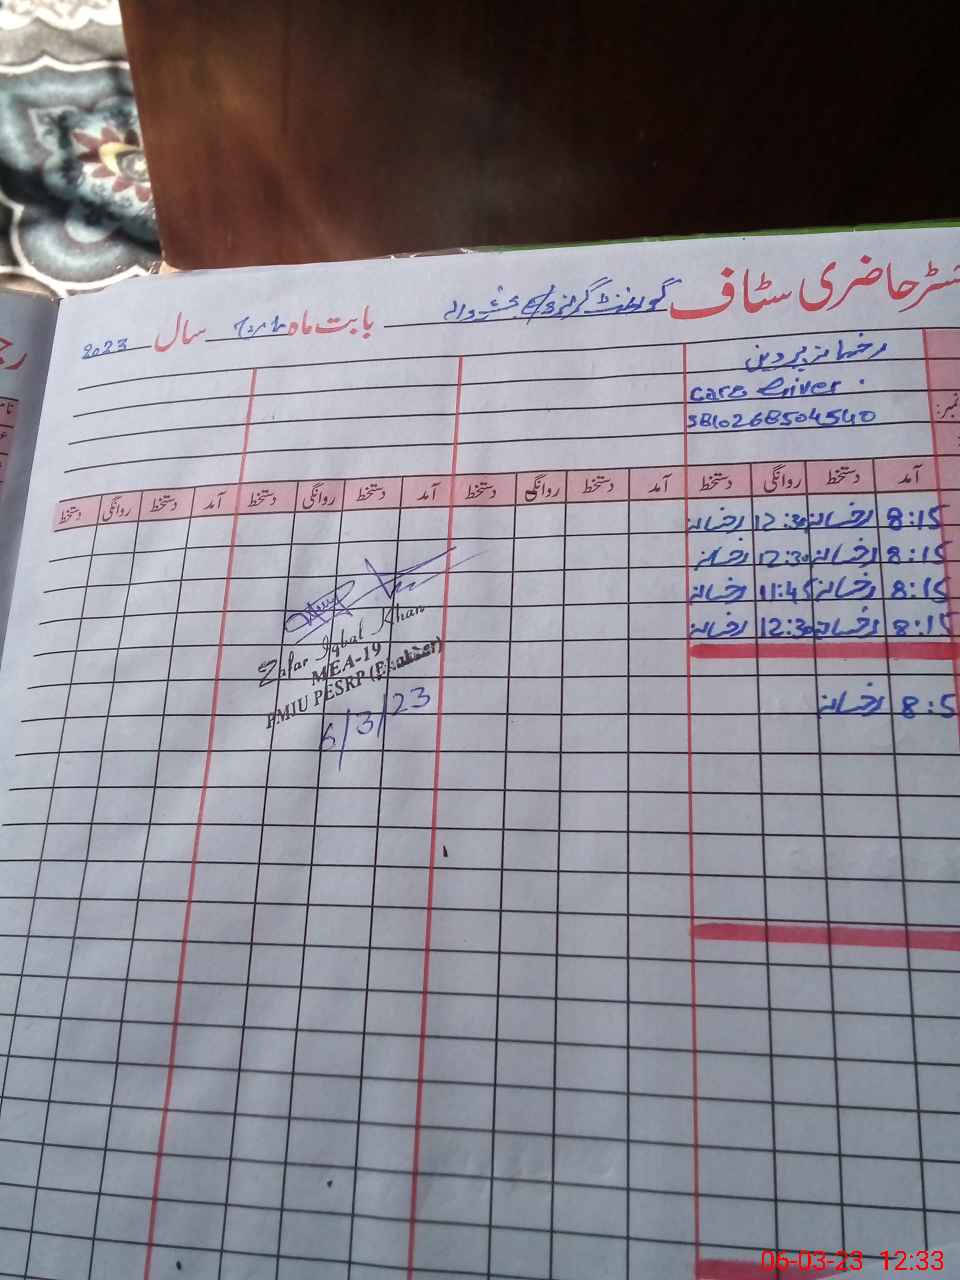 رجسٹر حاضری سٹاف گورنمنٹ گرلز بابت ماہ مارچ سال 2023
رخسانہ پروین
Care Giver
نمبر:
آمد دستخط روانگی دستخط آمد دستخط روانگی دستخط آمد دستخط روانگی دستخط آمد دستخط روانگی دستخط
8:15 رخسانہ 12:30 رخسانہ
8:15 رخسانہ 12:30 رخسانہ
8:15 رخسانہ 11:45 رخسانہ
8:15 رخسانہ 12:30 رخسانہ
8:5 رخسانہ
Zafar Iqbal Khan
MEA-19
PMIU PESRP
6/3/23
06-03-23 12:33